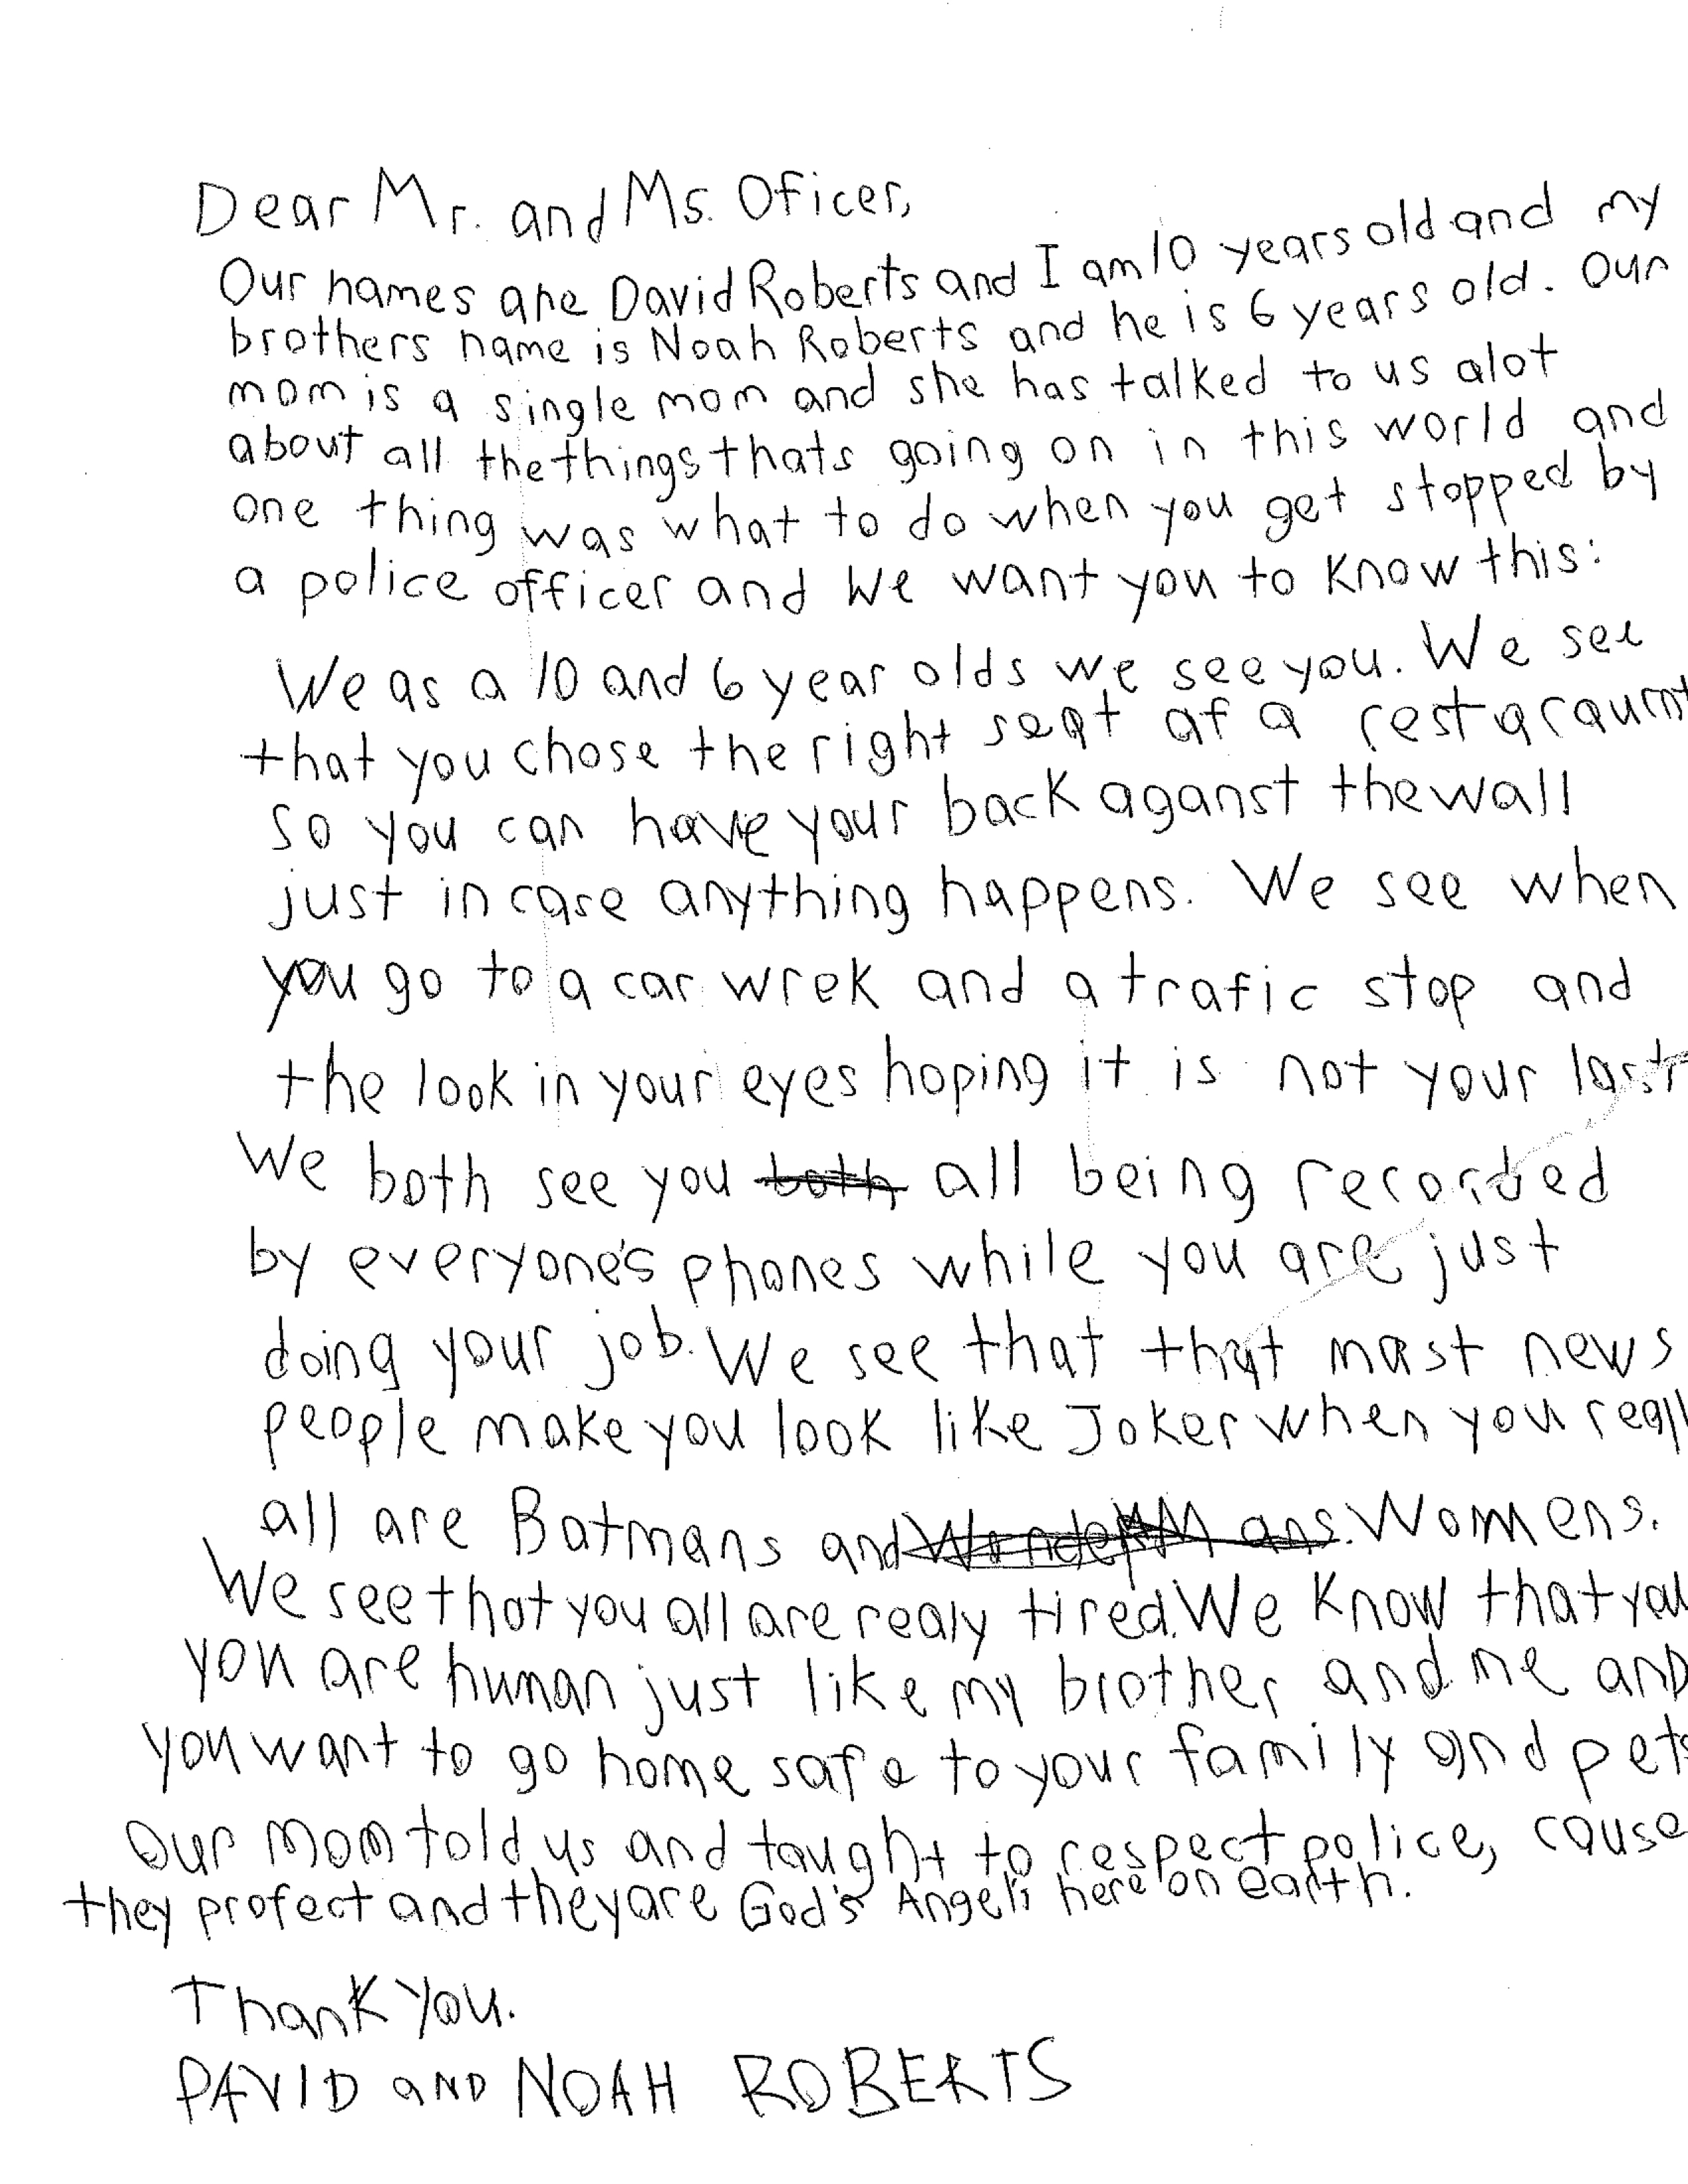 Dear Mr. and Ms. Oficer,
Our names are David Roberts and I am 10 years old and my
brothers name is Noah Roberts and he is 6 years old. Our
mom is a single mom and she has talked to us alot
about all the things thats going on in this world and
one thing was what to do when you get stopped by
a police officer and we want you to know this:
We as a 10 and 6 year olds we see you. We see
that you chose the right seat at a restaraunt
so you can have your back aganst the wall
just in case anything happens. We see when
you go to a car wrek and a trafic stop and
the look in your eyes hoping it is not your last
We both see you both all being recorded
by everyone's phones while you are just
doing your job. We see that that most news
people make you look like Joker when you reall
all are Batmans and WonderMans. Womens.
We see that you all are realy tired. We know that you
you are human just like my brother and me and
you want to go home safe to your family and pets
Our Mom told us and taught to respect police, cause
they protect and they are God's Angel's here on earth.
Thank You.
DAVID and NOAH ROBERTS